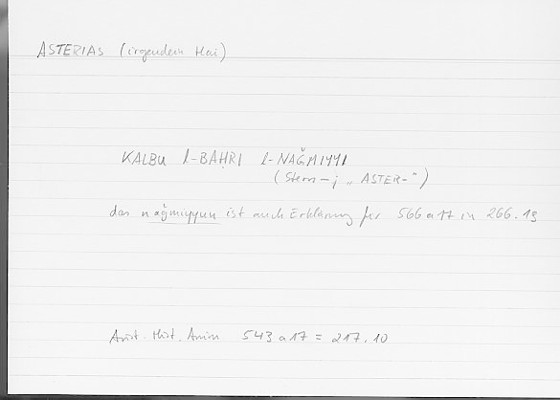 ASTERIAS (irgendein Hai)
KALBU L-BAḤRI L-NAǦMIYYI
(Stern-; „ASTER-“)
das naǧmiyyun ist auch Erklärung für 566 a 17 in 266.19
Arist. Hist. Anim 543 a 17 = 217.10